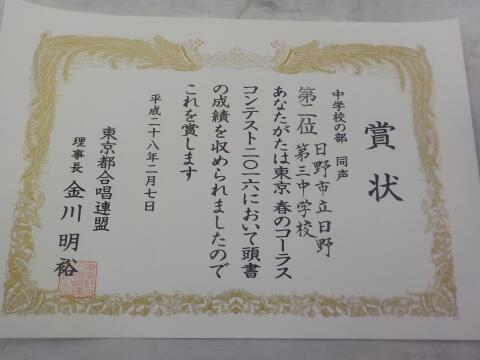 賞状
中学校の部 同声
第二位 日野市立日野
第三中学校
あなたがたは東京 春のコーラス
コンテスト二〇一六において頭書
の成績を収められましたので
これを賞します
平成二十八年二月七日
東京都合唱連盟
理事長 金川明裕